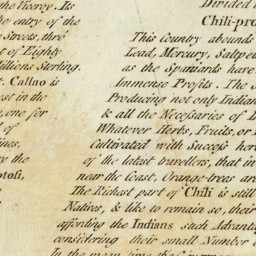 the Viceroy. Its
the entry of the
Streets, thro'
of Eighty
Millions Sterling.
t. Callao is
est in the
one for
of
ines,
y the
otosi,
Divided
Chili-pro
This Country abounds
Lead, Mercury, Saltpe
as the Spaniards have
Immense Profits. The S
Producing not only Indian
& all the Necessaries of L
Whatever Herbs, Fruits, or
Cultivated with Success her
of the latest travellers, that in
near the Coast, Orange-trees are
The Richest part of Chili is still
Natives, & like to remain so, their
affording the Indians such Advanta
considering their small Number
In the mean time the